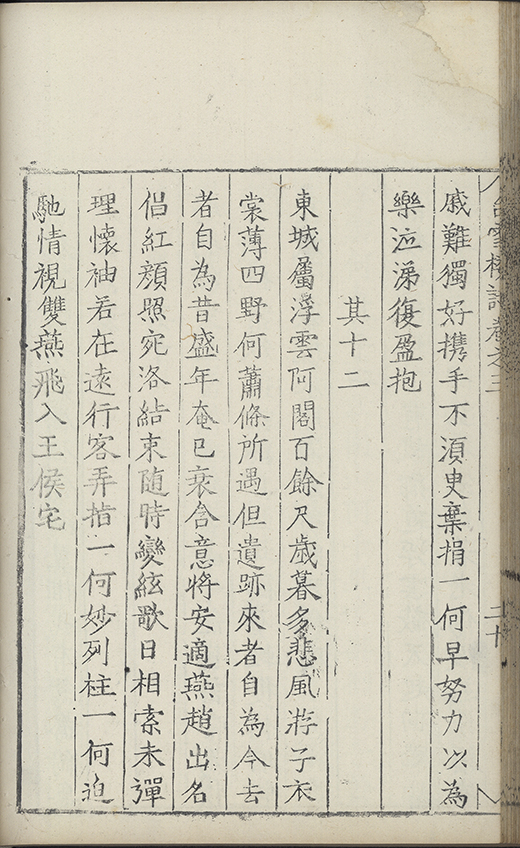 雪樓詩卷之三
二十
戚難獨好携手不湏臾棄捐一何早努力以為
樂泣涕復盈抱
其十二
東城屬浮雲阿閣百餘尺歲暮多悲風游子衣
裳薄四野何蕭條所遇但遺跡來者自為今去
者自為昔盛年奄已衰含意將安適燕趙出名
倡紅顔照宛洛結束随時變絃歌日相索未彈
理懷袖若在遠行客弄指一何妙列柱一何迫
馳情視雙燕飛入王侯宅